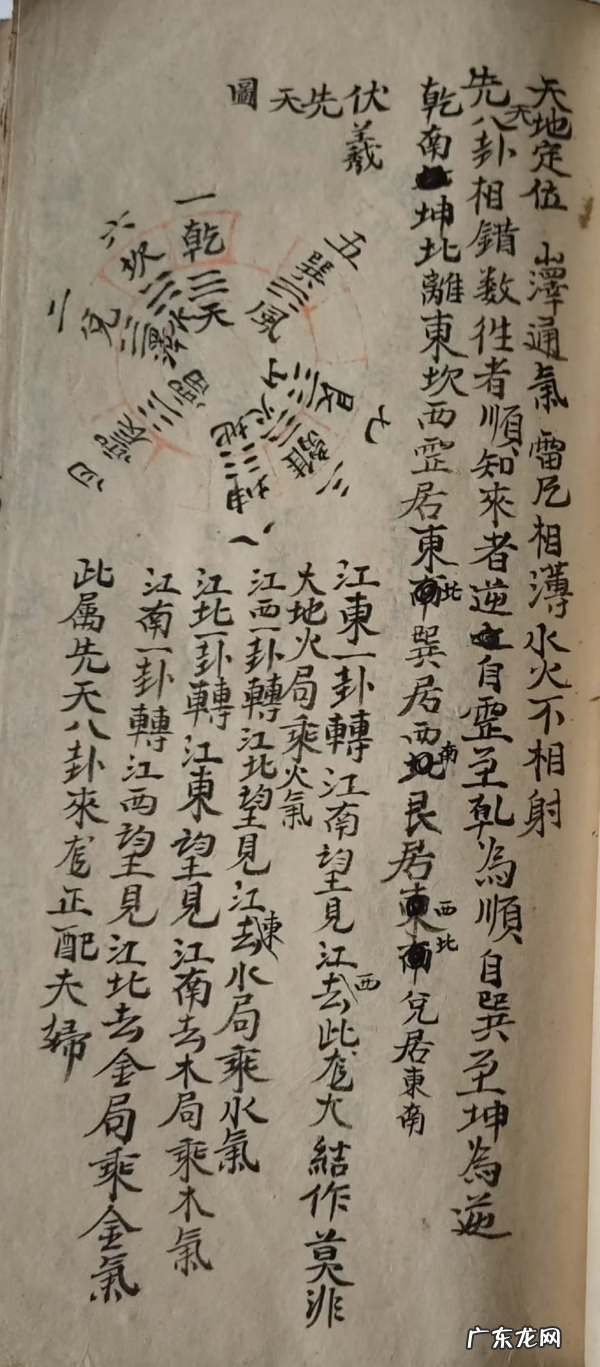 天地定位 山澤通氣 雷凡相薄水火不相射
先天八卦相錯数徃者順知來者逆自霊至乹為順自巽至坤為逆
乾南坤北離東坎西霊居東北巽居西南艮居西北兌居東南
伏羲先天圖
一乾
三天
五巽
風
七艮
山
離
八坤
地
四
雷
二兌
澤
六
水
江東一卦轉江南望見江西去此龙大結作莫非
大地火局乘火氣
江西一卦轉江北望見江東去水局乘水氣
江北一卦轉江東望見江南去木局乘木氣
江南一卦轉江西望見江北去金局乘金氣
此属先天八卦來龙正配夫婦
广东龙网